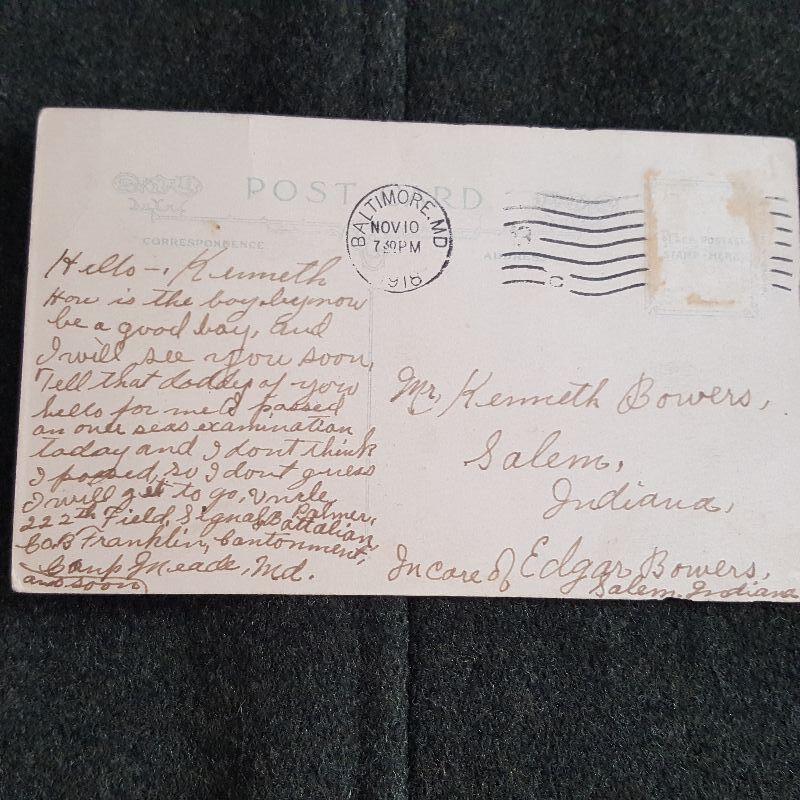 POST CARD
CORRESPONDENCE
ADDRESS
PLACE POSTAGE
STAMP HERE
BALTIMORE, MD
NOV 10
730 PM
1918
Hello—, Kenneth
How is the boy by now
be a good boy, and
I will see you soon,
Tell that daddy of your
hello for me I passed
an over seas examination
today and I dont think
I passed, so I dont guess
I will get to go, Uncle
Palmer,
222th Field, Signal Battalian,
Co.B Franklin, Cantonment,
Camp Meade, Md.
ans soon
Mr, Kenneth Bowers,
Salem,
Indiana,
In care of Edgar Bowers,
Salem, Indiana